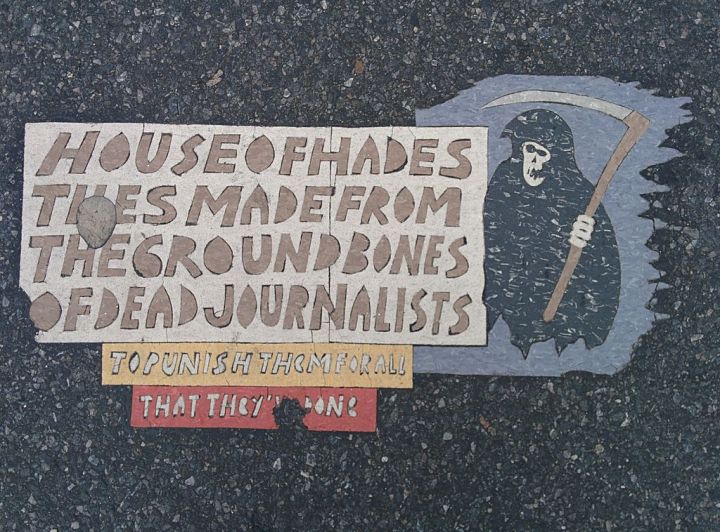 HOUSE OF HADES
TILES MADE FROM
THE GROUND BONES
OF DEAD JOURNALISTS
TO PUNISH THEM FOR ALL
THAT THEY'VE DONE